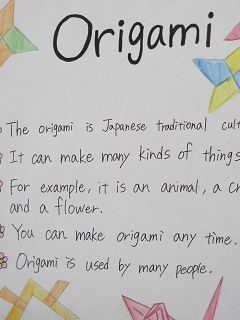 Origami
The origami is Japanese traditional cult
It can make many kinds of things
For example, it is an animal, a cr
and a flower.
You can make origami any time.
Origami is used by many people.